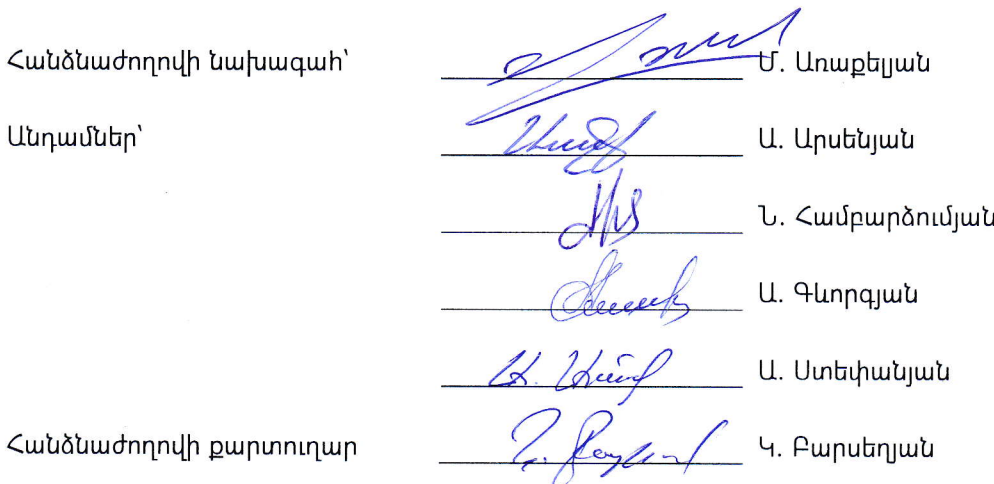 Հանձնաժողովի նախագահ՝ Մ. Առաքելյան
Անդամներ՝ Ա. Արսենյան
Ն. Համբարձումյան
Ա. Գևորգյան
Ա. Ստեփանյան
Հանձնաժողովի քարտուղար Կ. Բարսեղյան